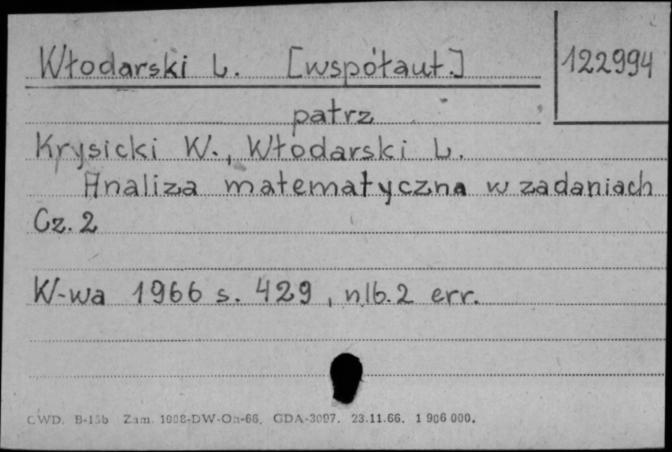 Włodarski L. [współaut.] 122994
patrz
Krysicki W., Włodarski L.
Analiza matematyczna w zadaniach
Cz. 2
W-wa 1966 s. 429, nlb. 2 err.
CWD. B-15b Zam. 1908-DW-On-66. GDA-3097. 23.11.66. 1 906 000.